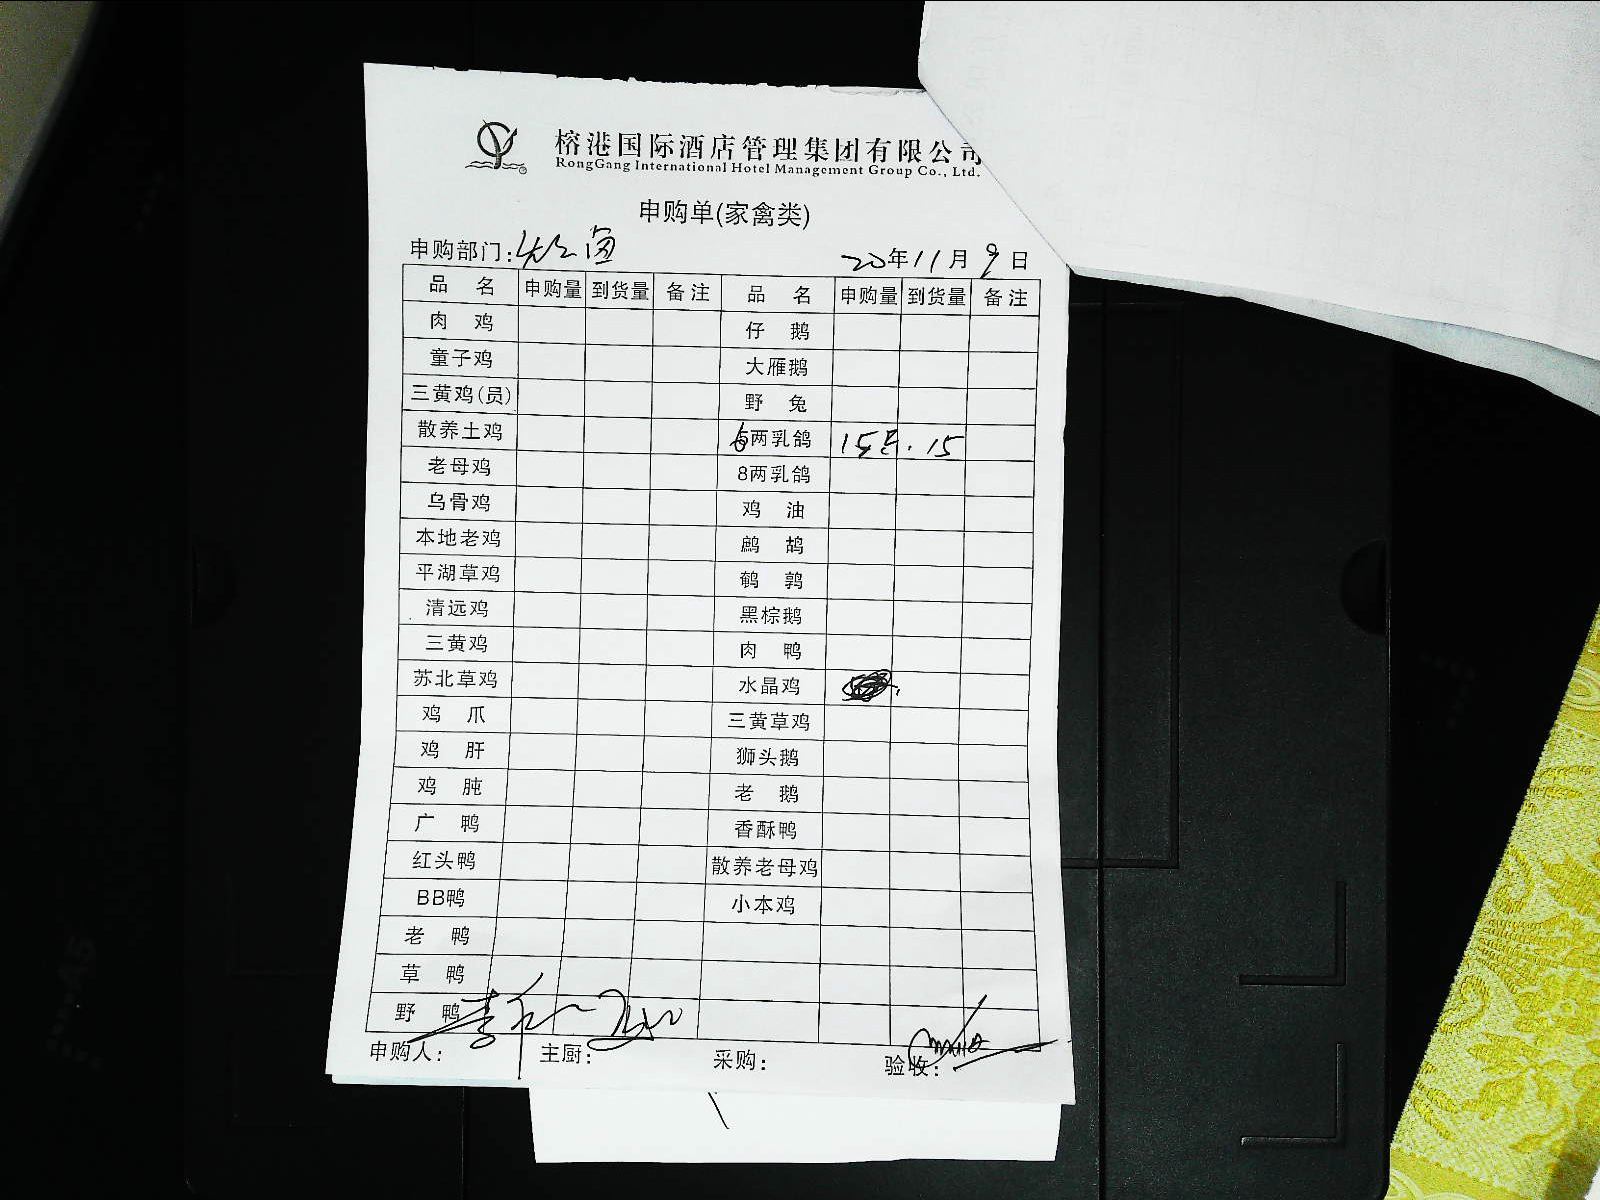 榕港国际酒店管理集团有限公司
RongGang International Hotel Management Group Co., Ltd.
申购单(家禽类)
申购部门: 20年11月9日
品名 申购量 到货量 备注 品名 申购量 到货量 备注
肉鸡 仔鹅
童子鸡 大雁鹅
三黄鸡(员) 野兔
散养土鸡 6两乳鸽 15只. 15
老母鸡 8两乳鸽
乌骨鸡 鸡油
本地老鸡 鹧鸪
平湖草鸡 鹌鹑
清远鸡 黑棕鹅
三黄鸡 肉鸭
苏北草鸡 水晶鸡
鸡爪 三黄草鸡
鸡肝 狮头鹅
鸡肫 老鹅
广鸭 香酥鸭
红头鸭 散养老母鸡
BB鸭 小本鸡
老鸭
草鸭
野鸭
申购人: 主厨: 采购: 验收: